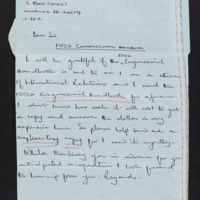 Dear Sir,
FOIA CONGRESSIONAL HANDBOOK
FOIA
I will be grateful if the Congressional
Handbook is sent to me. I am a student
of International Relations and I need the
FOIA Congressional Handbook for reference.
I don't know how much it will cost to get
a copy and moreover the dollar is very
expensive here. So please help send me a
complimentary copy for I need it urgently.
While thanking you in advance for your
anticipated co-operation I look forward
to hearing from you. Regards.